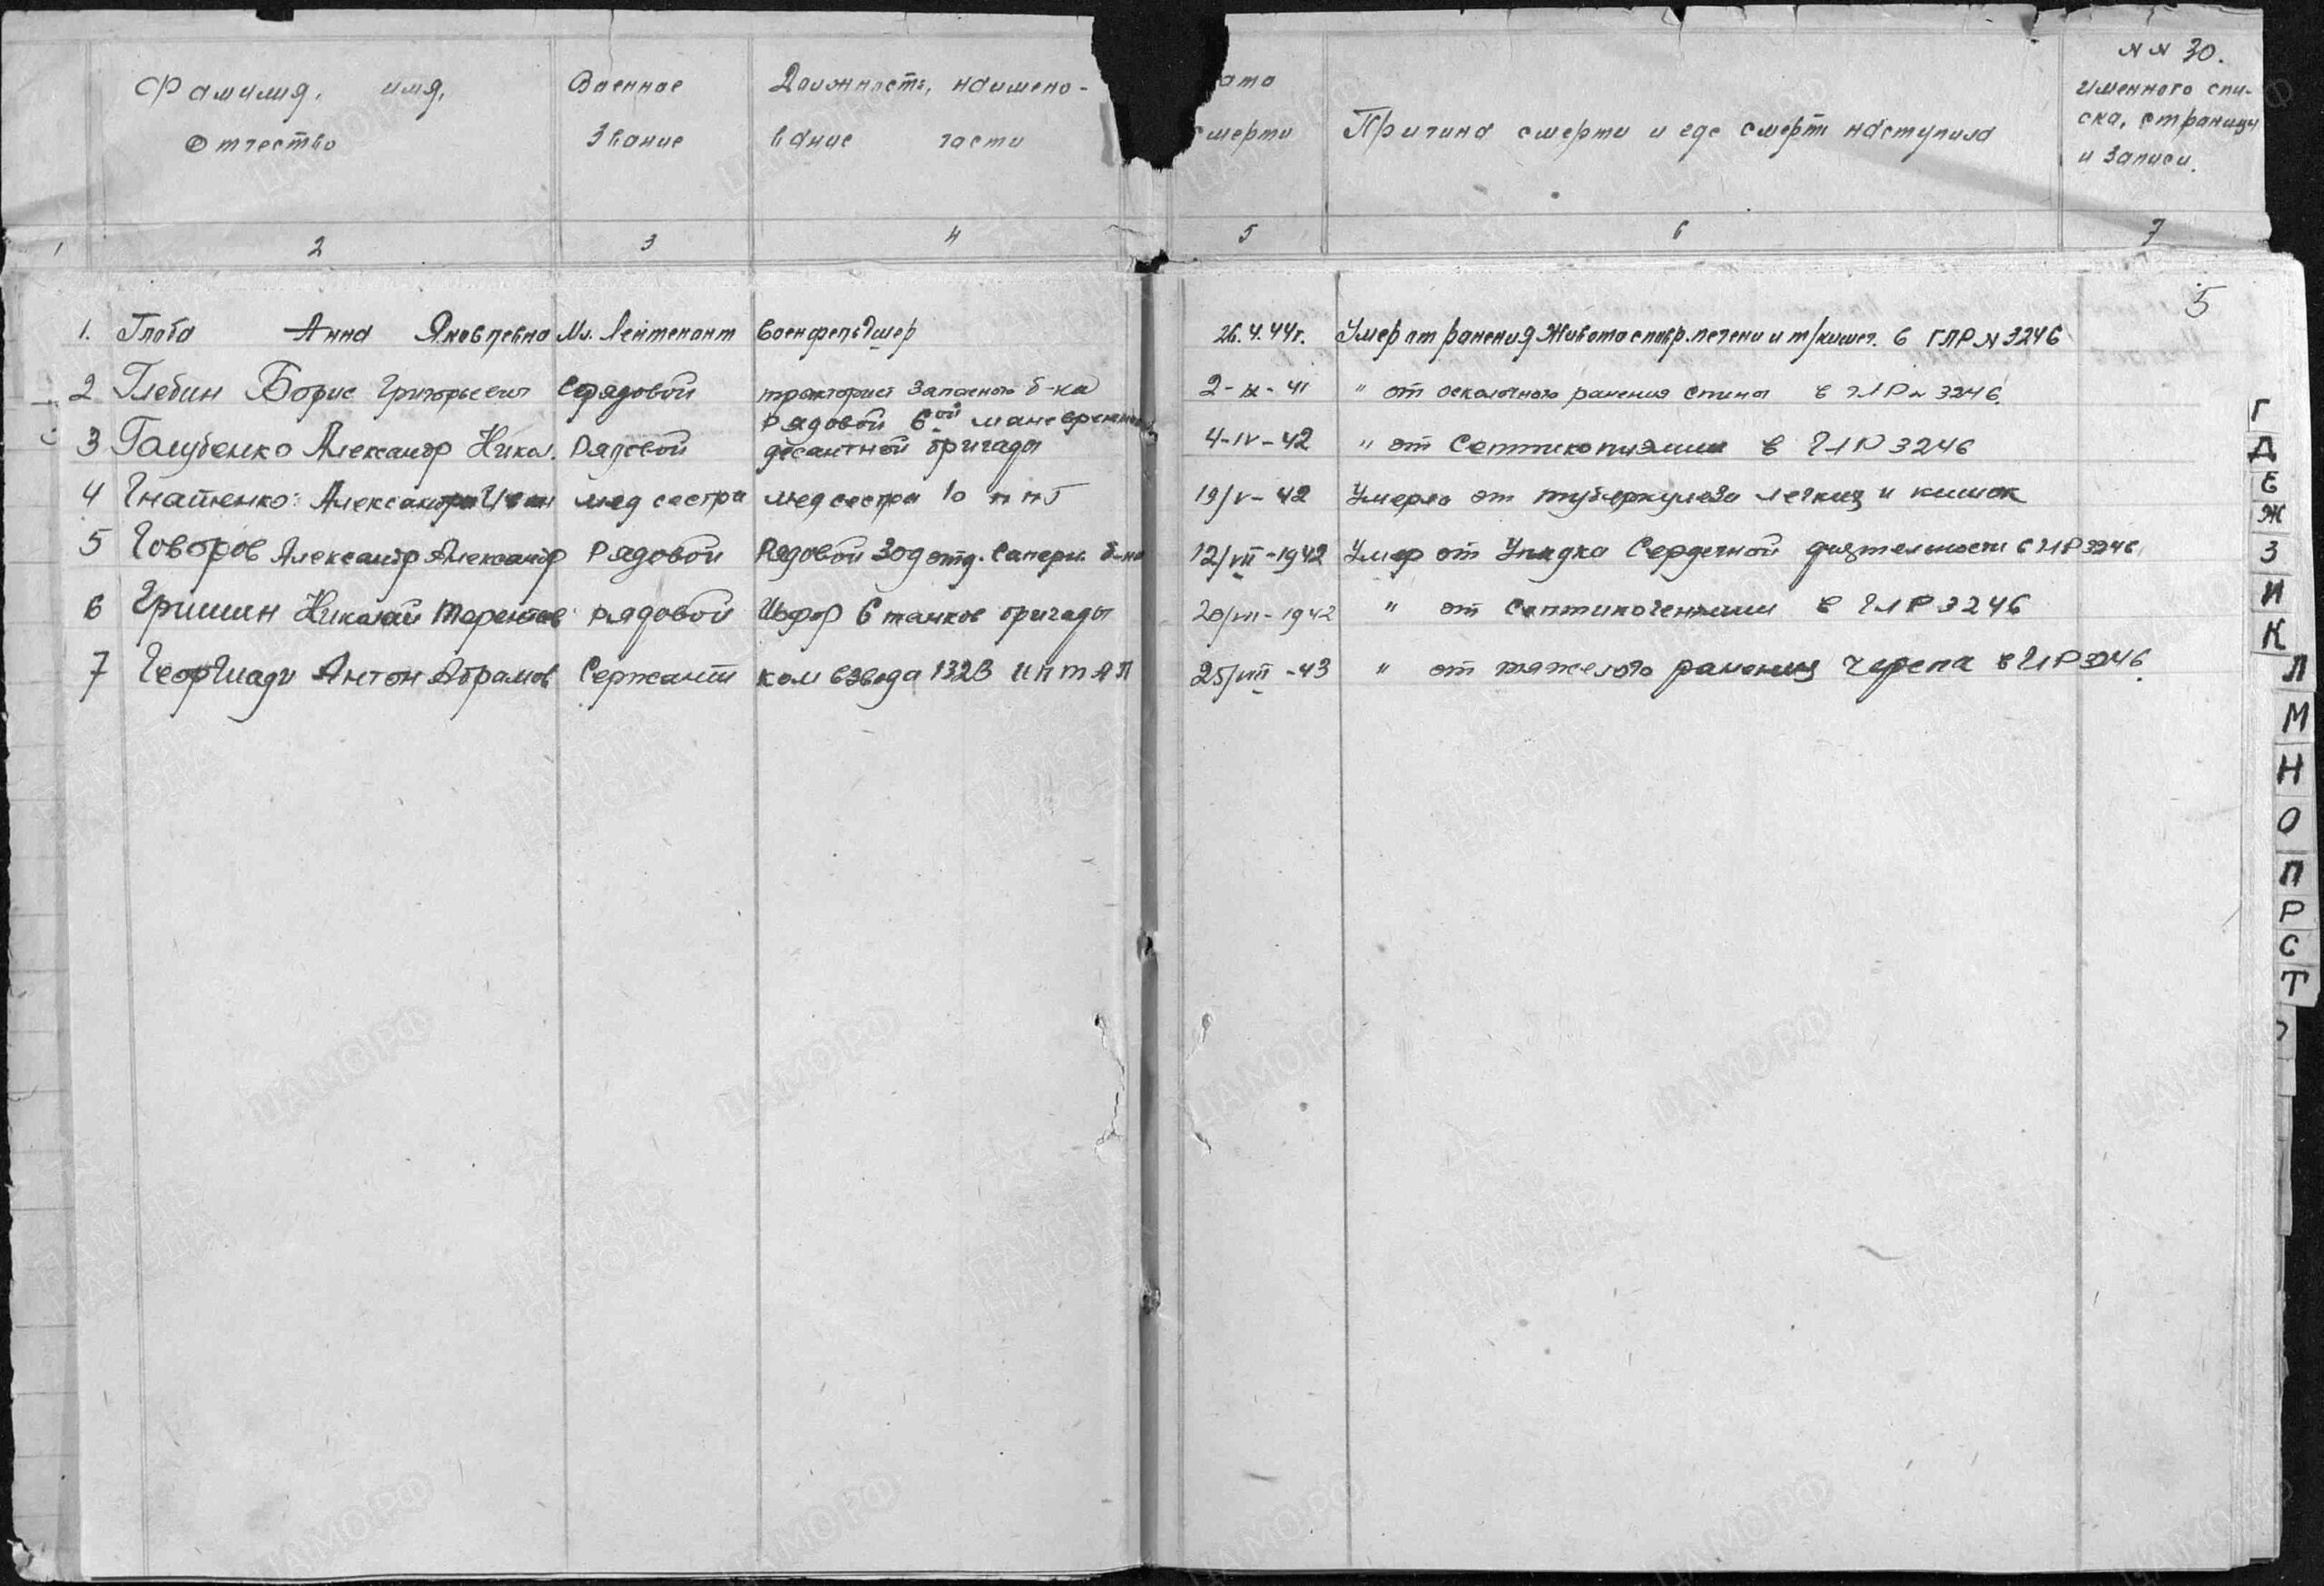 Фамилия, имя, Отчество
Военное Звание
Должность, наименование части
ата смерти
Причина смерти и где смерть наступила
№№ 30.
именного спи-
ска, страницы
и записи.
1 2 3 4 5 6 7
5
1. Глоба Анна Яковлевна Мл. Лейтенант Военфельдшер 26.4.44г. Умер от ранения Живота с повр. печени и т/кишеч. в ГЛР № 3246
2 Глебин Борис Григорьевич рядовой тракторист Запасного б-на 2-IX-41 " от осколочного ранения спины в ГЛР № 3246.
3 Голубенко Александр Никол. Рядовой Рядовой 6ой маневренно
десантной бригады 4-IV-42 " от Септикопиэмии в ГЛР 3246
4 Гнатенко Александра Иван мед сестра мед сестра 10 ппГ 19/V-42 Умерла от туберкулеза легких и кишок
5 Говоров Александр Александр Рядовой Рядовой 30д отд. Саперн. б-на 12/VII-1942 Умер от Упадка Сердечной деятельности в ГЛР 3246
6 Гришин Николай Терентьев рядовой Шофер 6 танков бригады 20/VII-1942 " от в ГЛР 3246
7 Георгиади Антон Абрамов Сержант ком взвода 1328 ИПТАП 25/VIII-43 " от тяжелого ранения черепа в ГЛР 3246.
Г
Д
Е
Ж
З
И
К
Л
М
Н
О
П
Р
С
Т